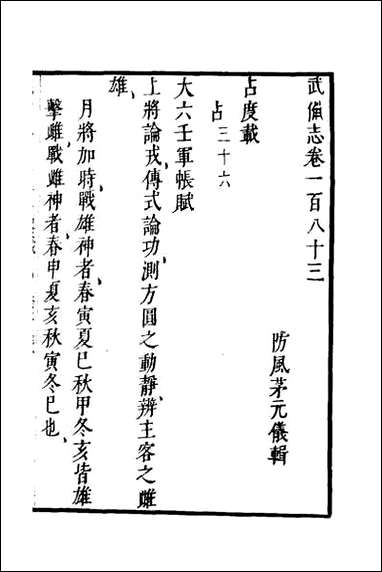 武備志卷一百八十三
防風茅元儀輯
占度載
占三十六
大六壬軍帳賦
上將論戎、傳式論功、測方圓之動靜、辨主客之雌
雄、
月將加時、戰雄神者、春寅夏巳秋甲冬亥皆雄
擊雌戰、雌神者、春申夏亥秋寅冬巳也、